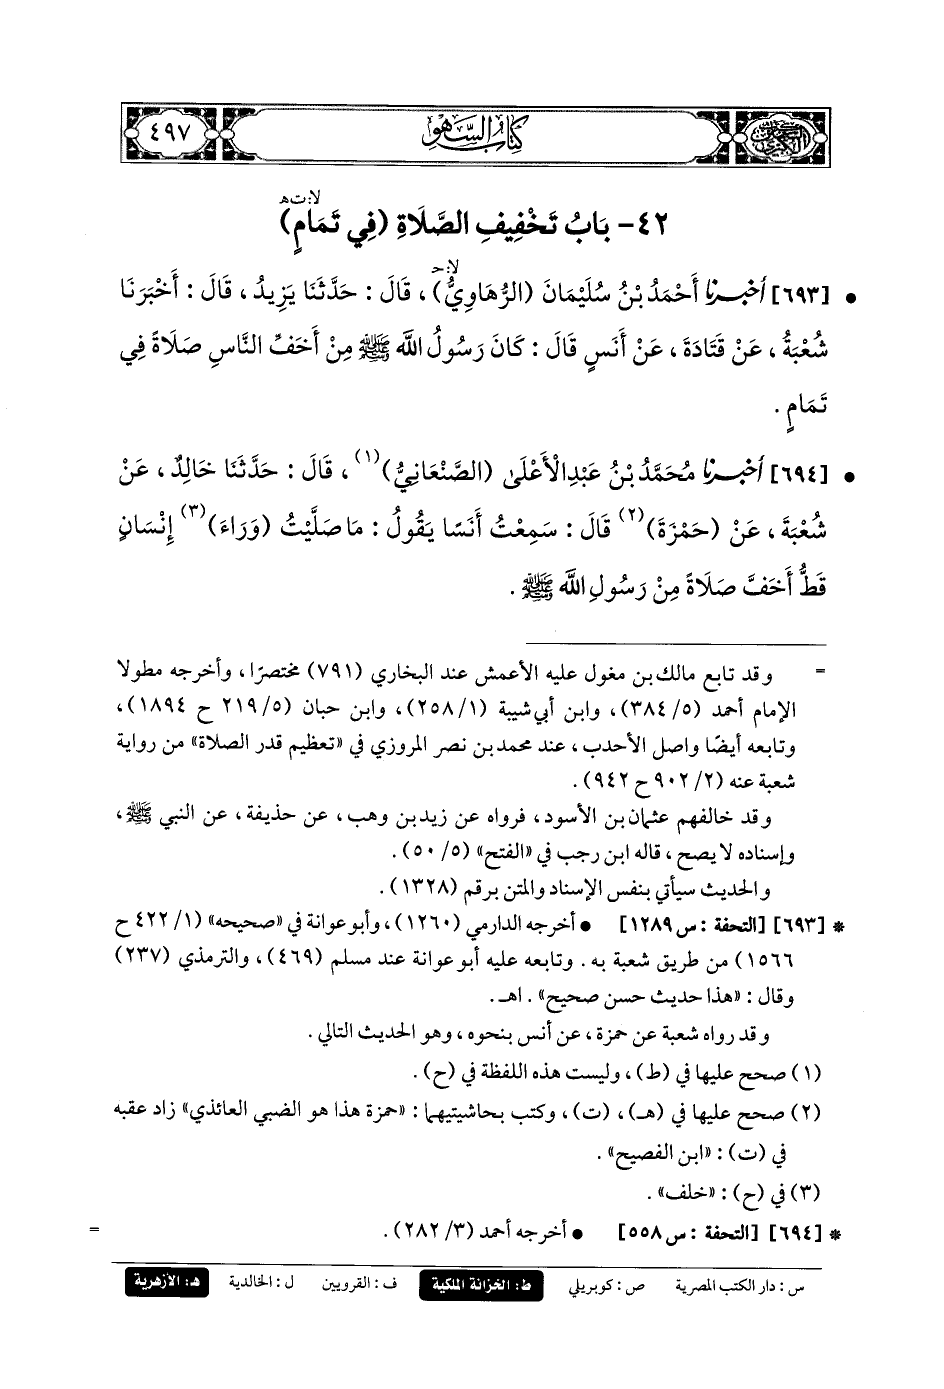 السنن الكبرى كتاب السهو ٤٩٧
لا: ت هـ
٤٢- بَابُ تَخْفِيفِ الصَّلَاةِ (فِي تَمَامٍ)
لا: حـ
• [٦٩٣] أخبرنا أَحْمَدُ بْنُ سُلَيْمَانَ (الرُّهَاوِيُّ)، قَالَ: حَدَّثَنَا يَزِيدُ، قَالَ: أَخْبَرَنَا
شُعْبَةُ، عَنْ قَتَادَةَ، عَنْ أَنَسٍ قَالَ: كَانَ رَسُولُ اللَّه ﷺ مِنْ أَخَفِّ النَّاسِ صَلَاةً فِي
تَمَامٍ.
• [٦٩٤] أخبرنا مُحَمَّدُ بْنُ عَبْدِالْأَعْلَى (الصَّنْعَانِيُّ)(١)، قَالَ: حَدَّثَنَا خَالِدٌ، عَنْ
شُعْبَةَ، عَنْ (حَمْزَةَ)(٢) قَالَ: سَمِعْتُ أَنَسًا يَقُولُ: مَا صَلَّيْتُ (وَرَاءَ)(٣) إِنْسَانٍ
قَطُّ أَخَفَّ صَلَاةً مِنْ رَسُولِ اللَّه ﷺ.
= وقد تابع مالك بن مغول عليه الأعمش عند البخاري (٧٩١) مختصرًا، وأخرجه مطولا
الإمام أحمد (٥/ ٣٨٤)، وابن أبي شيبة (١/ ٢٥٨)، وابن حبان (٥/ ٢١٩ ح ١٨٩٤)،
وتابعه أيضًا واصل الأحدب، عند محمد بن نصر المروزي في «تعظيم قدر الصلاة» من رواية
شعبة عنه (٢/ ٩٠٢ ح ٩٤٢).
وقد خالفهم عثمان بن الأسود، فرواه عن زيد بن وهب، عن حذيفة، عن النبي ﷺ،
وإسناده لا يصح، قاله ابن رجب في «الفتح» (٥/ ٥٠).
والحديث سيأتي بنفس الإسناد والمتن برقم (١٣٢٨).
* [٦٩٣] [التحفة: س ١٢٨٩] • أخرجه الدارمي (١٢٦٠)، وأبو عوانة في «صحيحه» (١/ ٤٢٢ ح
١٥٦٦) من طريق شعبة به. وتابعه عليه أبو عوانة عند مسلم (٤٦٩)، والترمذي (٢٣٧)
وقال: «هذا حديث حسن صحيح». اهـ.
وقد رواه شعبة عن حمزة، عن أنس بنحوه، وهو الحديث التالي.
(١) صحح عليها في (ط)، وليست هذه اللفظة في (ح).
(٢) صحح عليها في (هـ)، (ت)، وكتب بحاشيتيهما: «حمزة هذا هو الضبي العائذي» زاد عقبه
في (ت): «ابن الفصيح».
(٣) في (ح): «خلف».
* [٦٩٤] [التحفة: س ٥٥٨] • أخرجه أحمد (٣/ ٢٨٢). =
س: دار الكتب المصرية ص: كوبريلي ط: الخزانة الملكية ف: القرويين ل: الخالدية هـ: الأزهرية